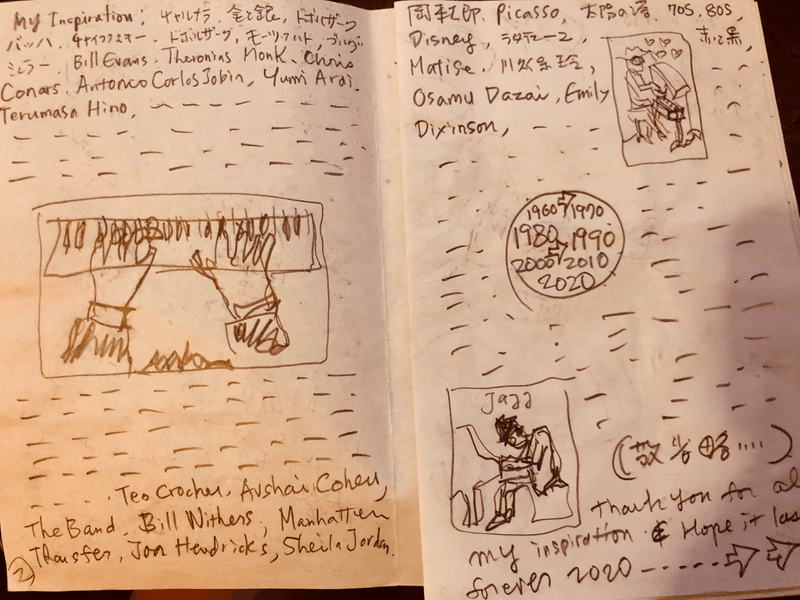 My Inspiration; チャルナラ, 金と銀, ドボルザーク
バッハ, チャイコフスキー, ドボルザーク, モーツァルト,
シェラー Bill Evans, Theronins Monk, Chris
Conars, Antonco Carlos Jobin, Yumi Arai,
Terumasa Hino,
Teo Crocker, Avshai Cohen,
The Band, Bill Withers, Manhatten
Transfer, Jon Hendricks, Sheila Jordan.
2
Picasso, 太陽の塔, 70s, 80s,
Disney, 赤と黒,
Matise,
Osamu Dazai, Emily
Dixinson,
1960 1970
1980 1990
2000 2010
2020
Jazz
(敬省略....)
thank you for al
my inspiration & Hope it las
forever 2020